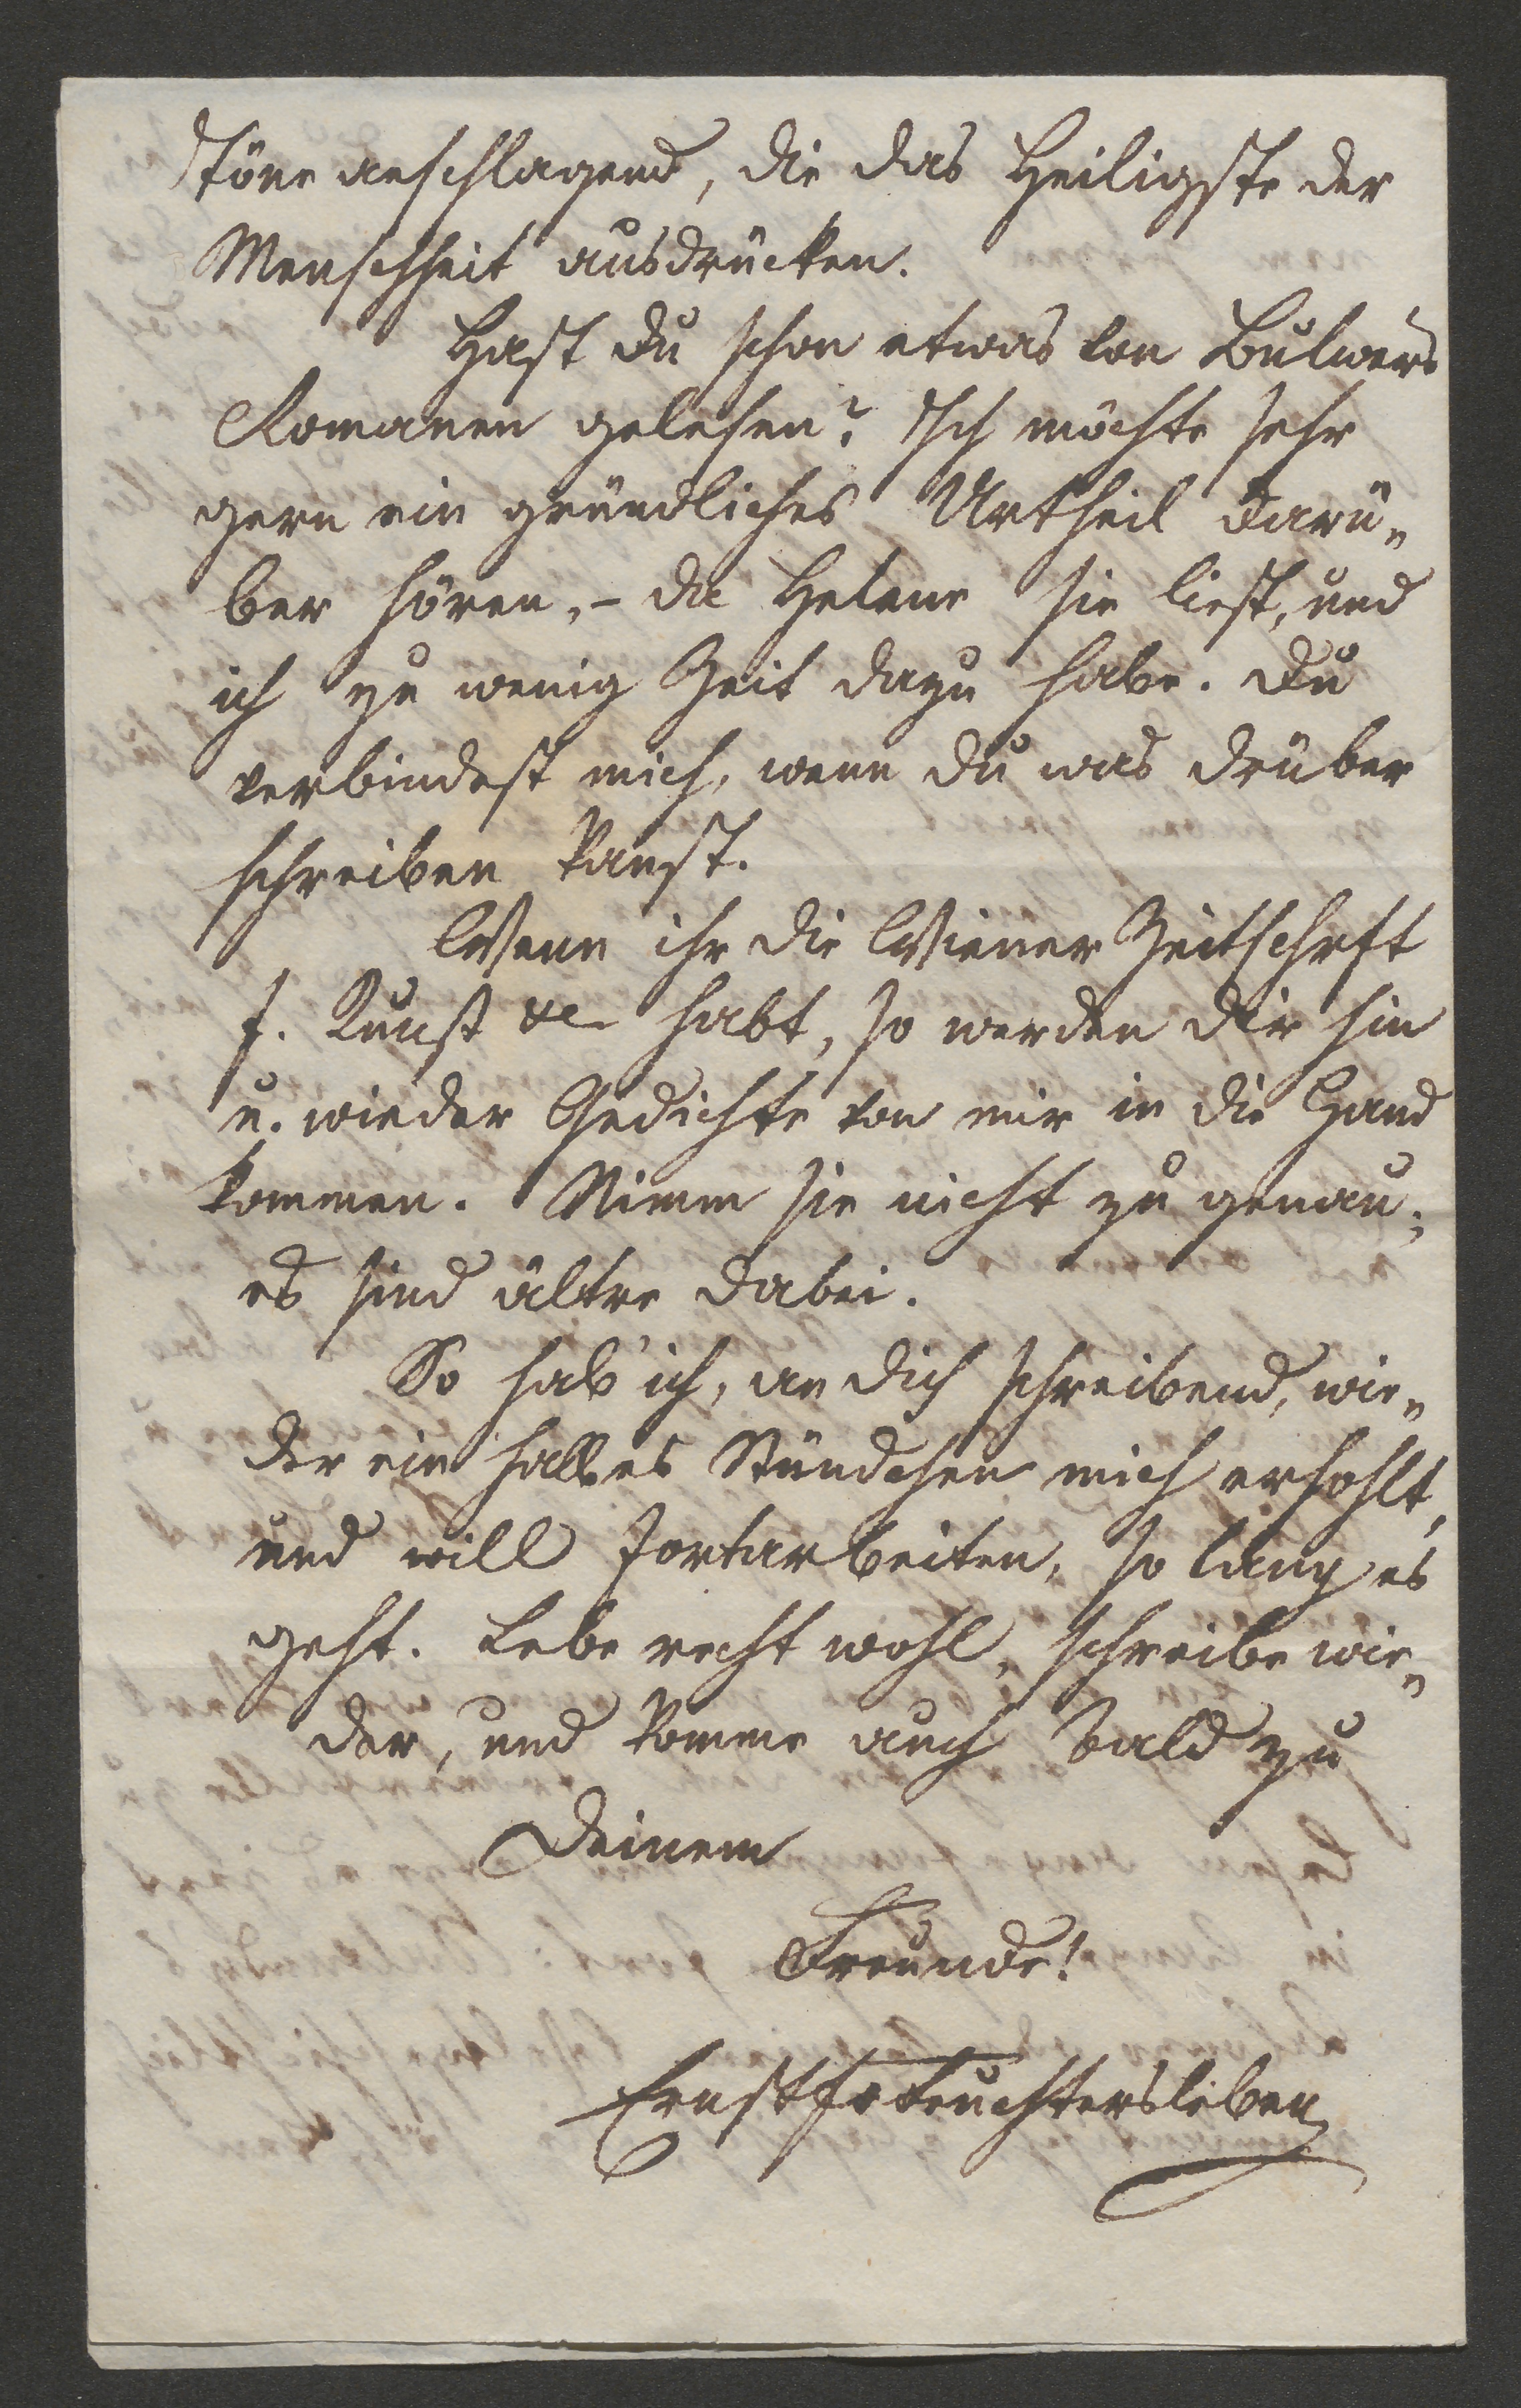 Töne anschlagend, die das Heiligste der
Menschheit ausdrücken.
Hast du schon etwas von Bulwers
Romanen gelesen? Ich möchte sehr
gern ein gründliches Urtheil darü-
ber hören, – da Helene sie liest, und
ich zu wenig Zeit dazu habe. Du
verbindest mich, wenn du was drüber
schreiben kanst.
Wenn ihr die Wiener Zeitschrft
f. Kunst &c habt, so werden dir hin
u. wieder Gedichte von mir in die Hand
kommen. Nimm sie nicht zu genau;
es sind ältre dabei.
So hab' ich, an dich schreibend, wie-
der ein halbes Stündchen mich erhohlt,
und will fortarbeiten, so lang es
geht. Lebe recht wohl, schreibe wie-
der, und komme auch bald zu
Deinem
Freunde!
Ernst Fr Feuchtersleben